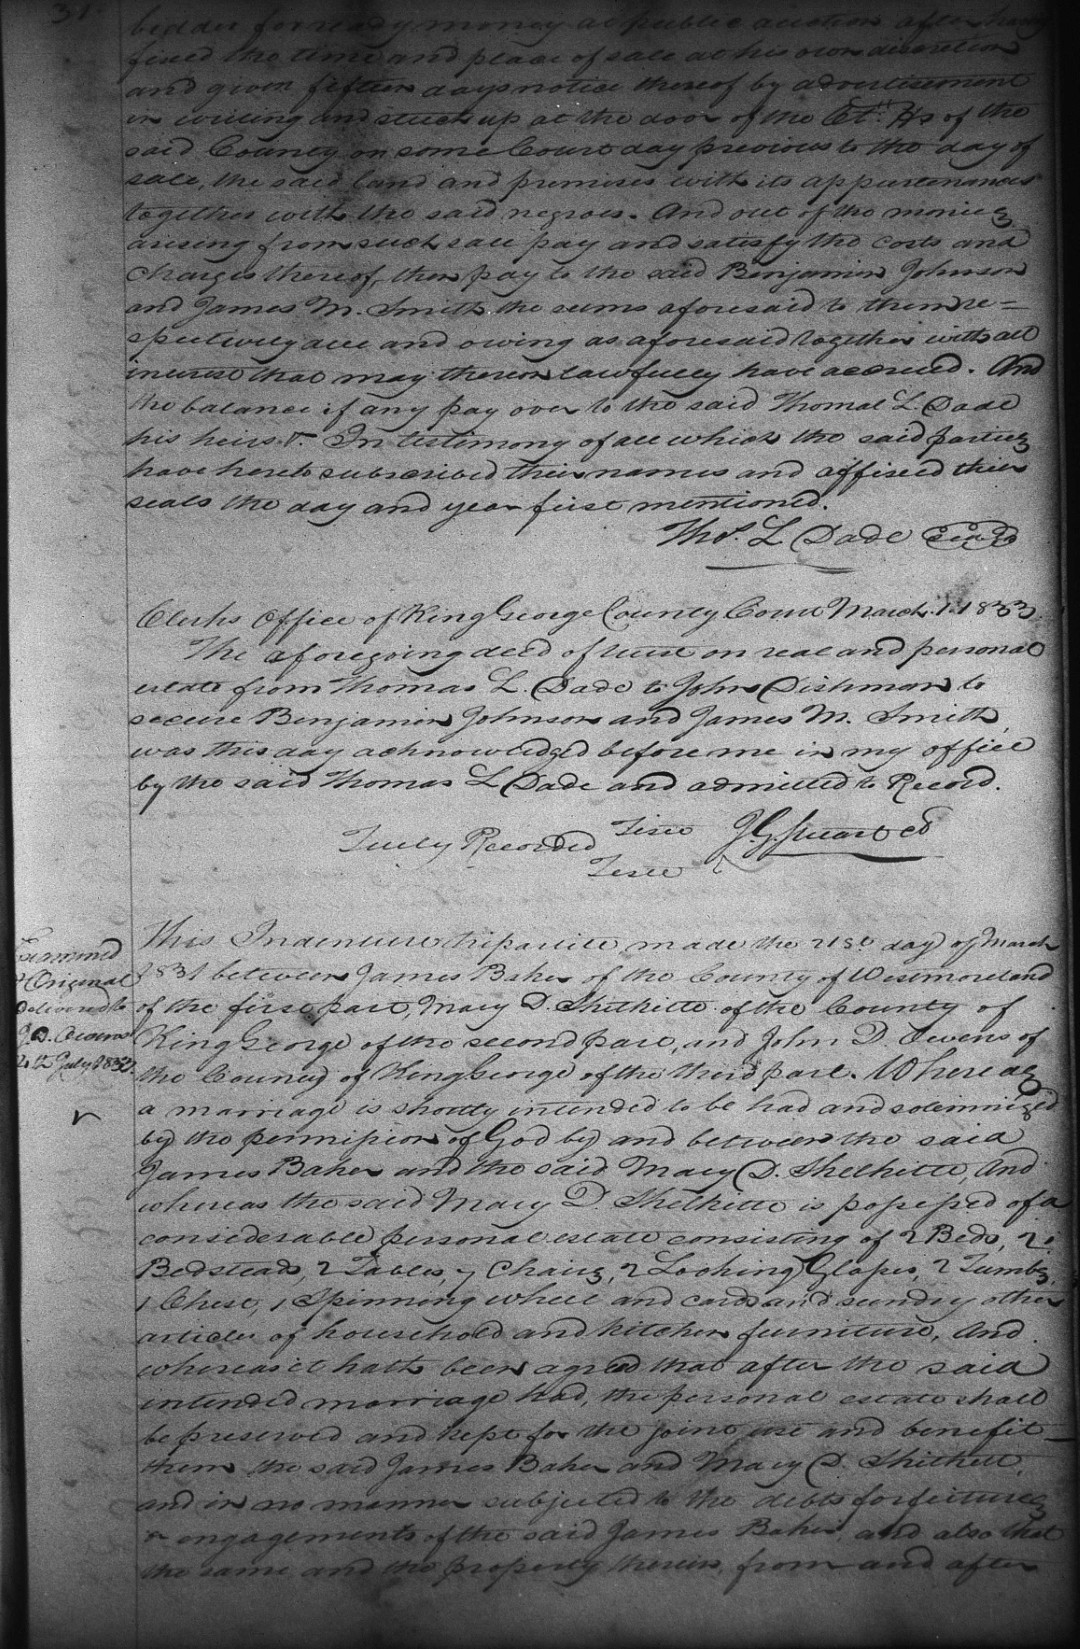 31
bidder for ready money at public auction after having
fixed the time and place of sale at his own discretion
and given fifteen days notice thereof by advertisement
in writing and stuck up at the door of the Ct. Hs of the
said County on some Court day previous to the day of
sale, the said land and premises with its appurtenances
together with the said negroes. And out of the monies
arising from such sale pay and satisfy the costs and
charges thereof, then pay to the said Benjamin Johnson
and James M. Smith the sums aforesaid to them re=
spectively due and owing as aforesaid together with all
interest that may thereon lawfully have accrued. And
the balance if any pay over to the said Thomas L. Dade
his heirs &. In testimony of all which the said parties
have hereto subscribed their names and affixed their
seals the day and year first mentioned.
Tho. L Dade Seal
Clerks Office of King George County Court March 1. 1833.
The aforegoing deed of trust on real and personal
estate from Thomas L. Dade to John Dishman to
secure Benjamin Johnson and James M. Smith
was this day acknowledged before me in my office
by the said Thomas L Dade and admitted to Record.
Teste J. G. Stuart CC
Truly Recorded
Teste
Examined
& Original
delivered to
J. D. Owens
July 1832
This Indenture tripartite made the 21st day of March
1831 between James Baker of the County of Westmoreland
of the first part, Mary D. Shelkitt of the County of
King George of the second part, and John D. Owens of
the County of King George of the third part. Whereas
a marriage is shortly intended to be had and solemnized
by the permission of God by and between the said
James Baker and the said Mary D. Shelkitt, And
whereas the said Mary D. Shelkitt is possessed of a
considerable personal estate consisting of 2 Beds, 2
Bedsteads, 2 Tables, 7 Chairs, 2 Looking Glasses, 2
1 Chest, 1 Spinning wheel and cards and sundry other
articles of household and kitchen furniture, And
whereas it hath been agreed that after the said
intended marriage had, the personal estate shall
be preserved and kept for the joint use and benefit
them the said James Baker and Mary D. Shelkitt,
and in no manner subjected to the debts forfeitures
or engagements of the said James Baker, and also that
the same and the property therein, from and after